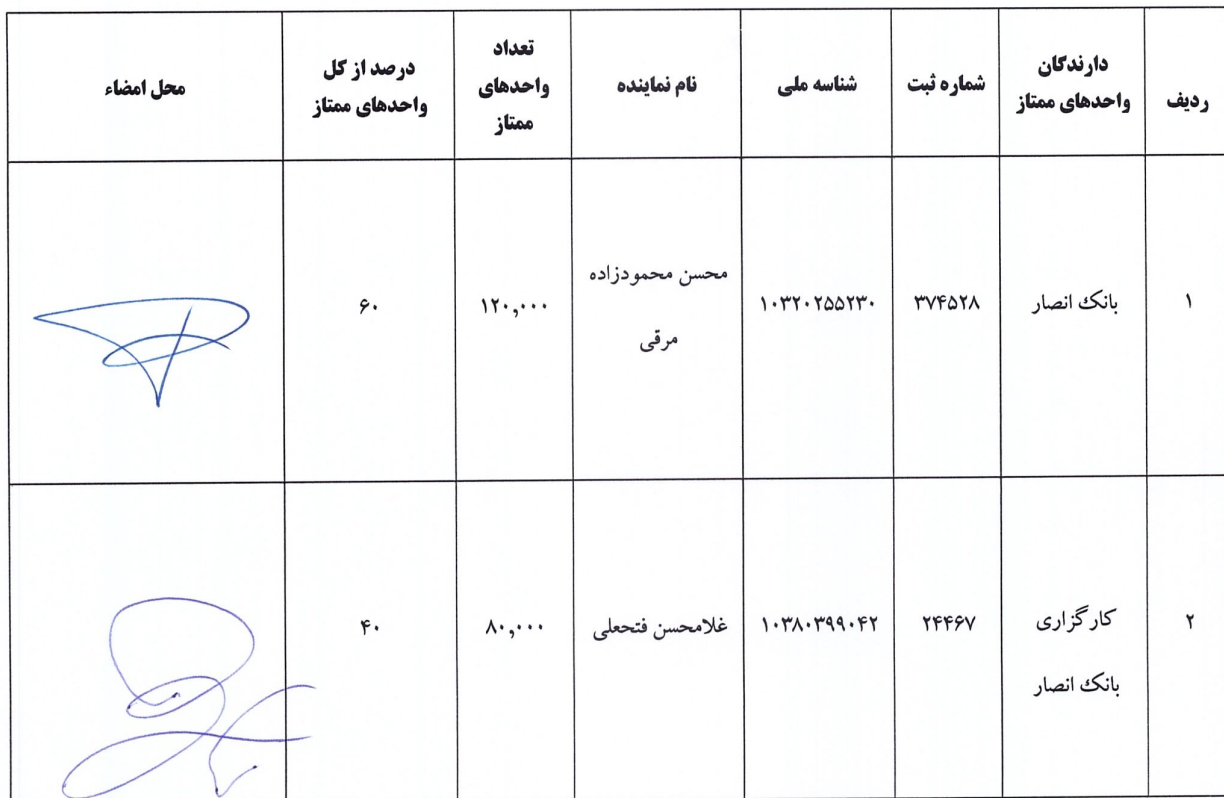 ردیف
دارندگان
واحدهای ممتاز
شماره ثبت
شناسه ملی
نام نماینده
تعداد
واحدهای
ممتاز
درصد از کل
واحدهای ممتاز
محل امضاء
۱
بانک انصار
۳۷۴۵۲۸
۱۰۳۲۰۲۵۵۲۳۰
محسن محمودزاده
مرقی
۱۲۰,۰۰۰
۶۰
۲
کارگزاری
بانک انصار
۲۴۴۶۷
۱۰۳۸۰۳۹۹۰۴۲
غلامحسن فتحعلی
۸۰,۰۰۰
۴۰